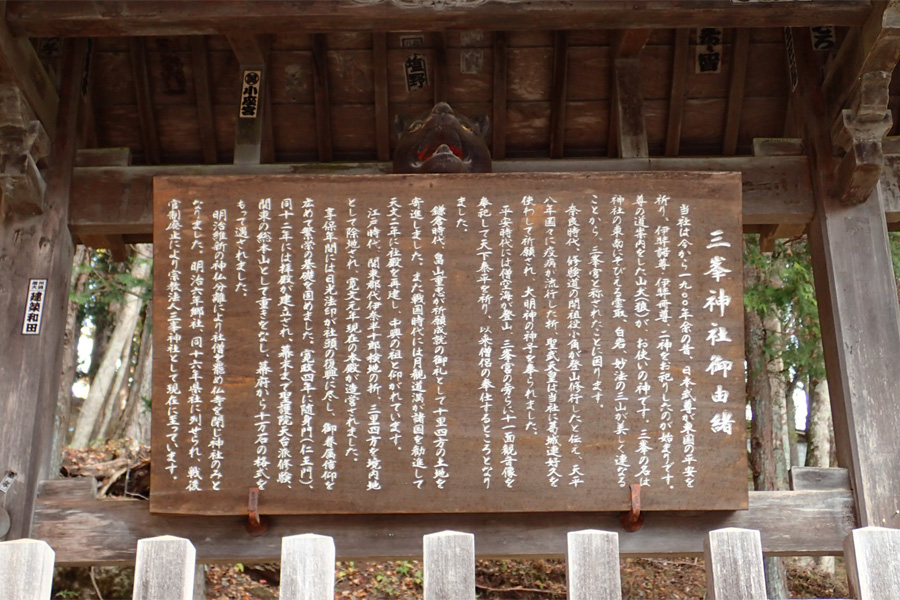 三峯神社御由緒
当社は今から一九〇〇年余の昔、日本武尊が東国の平安を
祈り、伊弉諾尊・伊弉冉尊二神をお祀りしたのが始まりです。
尊の道案内をした山犬(狼)が、お使いの神です。三峯の名は
神社の東南にそびえる雲取、白岩、妙法の三山が美しく連なる
ことから、三峯宮と称されたことに因ります。
奈良時代、修験道の開祖役小角が登山修行したと伝え、天平
八年国々に疫病が流行した折、聖武天皇は当社に葛城連好久を
使わして祈願され、大明神の神号を奉られました。
平安時代には僧空海が登山、三峯宮の傍らに十一面観音像を
奉祀して天下泰平を祈り、以来僧侶の奉仕するところとなり
ました。
鎌倉時代、畠山重忠が祈願成就の御礼として十里四方の土地を
寄進しました。また戦国時代には月観道満が諸国を勧進して
天文二年に社殿を再建し、中興の祖と仰がれています。
江戸時代、関東郡代伊奈半十郎検地の折、三里四方を境内地
として除地され、寛文元年現在の本殿が造営されました。
享保年間には日光法印が社頭の復興に尽し、御眷属信仰を
広めて繁栄の基礎を固めました。寛政四年に随身門(仁王門)、
同十二年には拝殿が建立され、幕末まで聖護院天台派修験、
関東の総本山として重きをなし、幕府から十万石の格式を
もって遇されました。
明治維新の神仏分離により社僧を罷め仏寺を閉じ神社のみと
なりました。明治六年郷社、同十六年県社に列せられ、戦後
官制廃止により宗教法人三峯神社として現在に至っています。
小森宮
塩野
留
建築和田